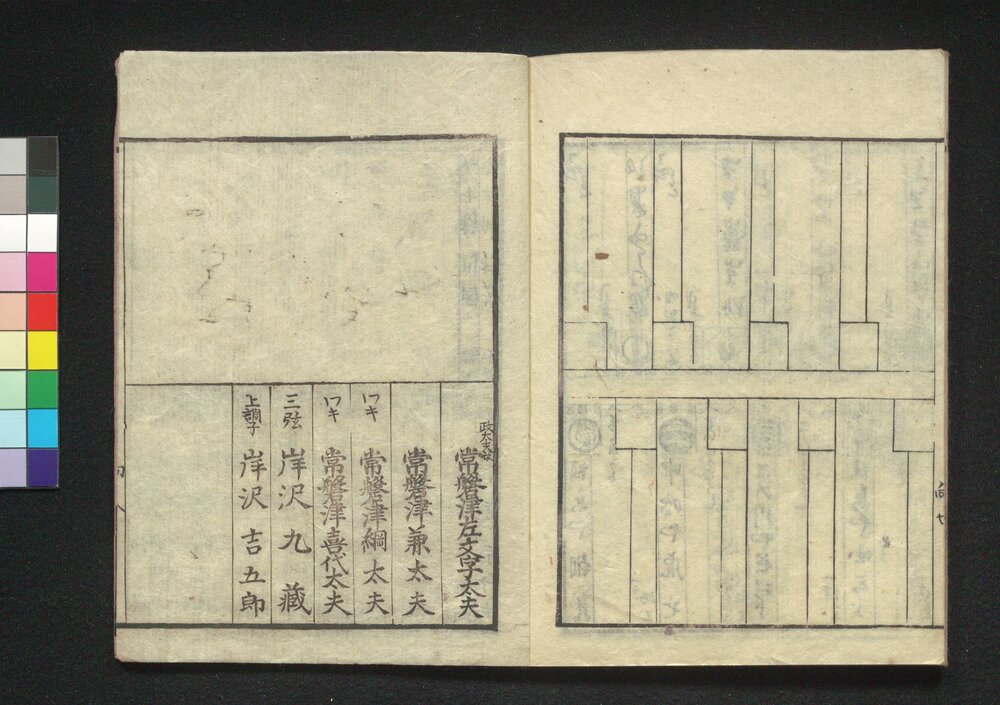 向七
政太夫改
常磐津左文字太夫
常磐津兼太夫
ワキ 常磐津綱太夫
ワキ 常磐津喜代太夫
三弦 岸沢九蔵
上調子 岸沢吉五郎